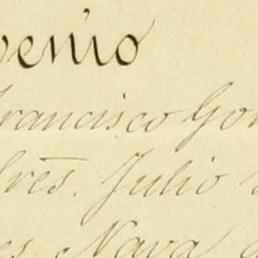 venio
Francisco Gon
Sres. Julio
es Nava